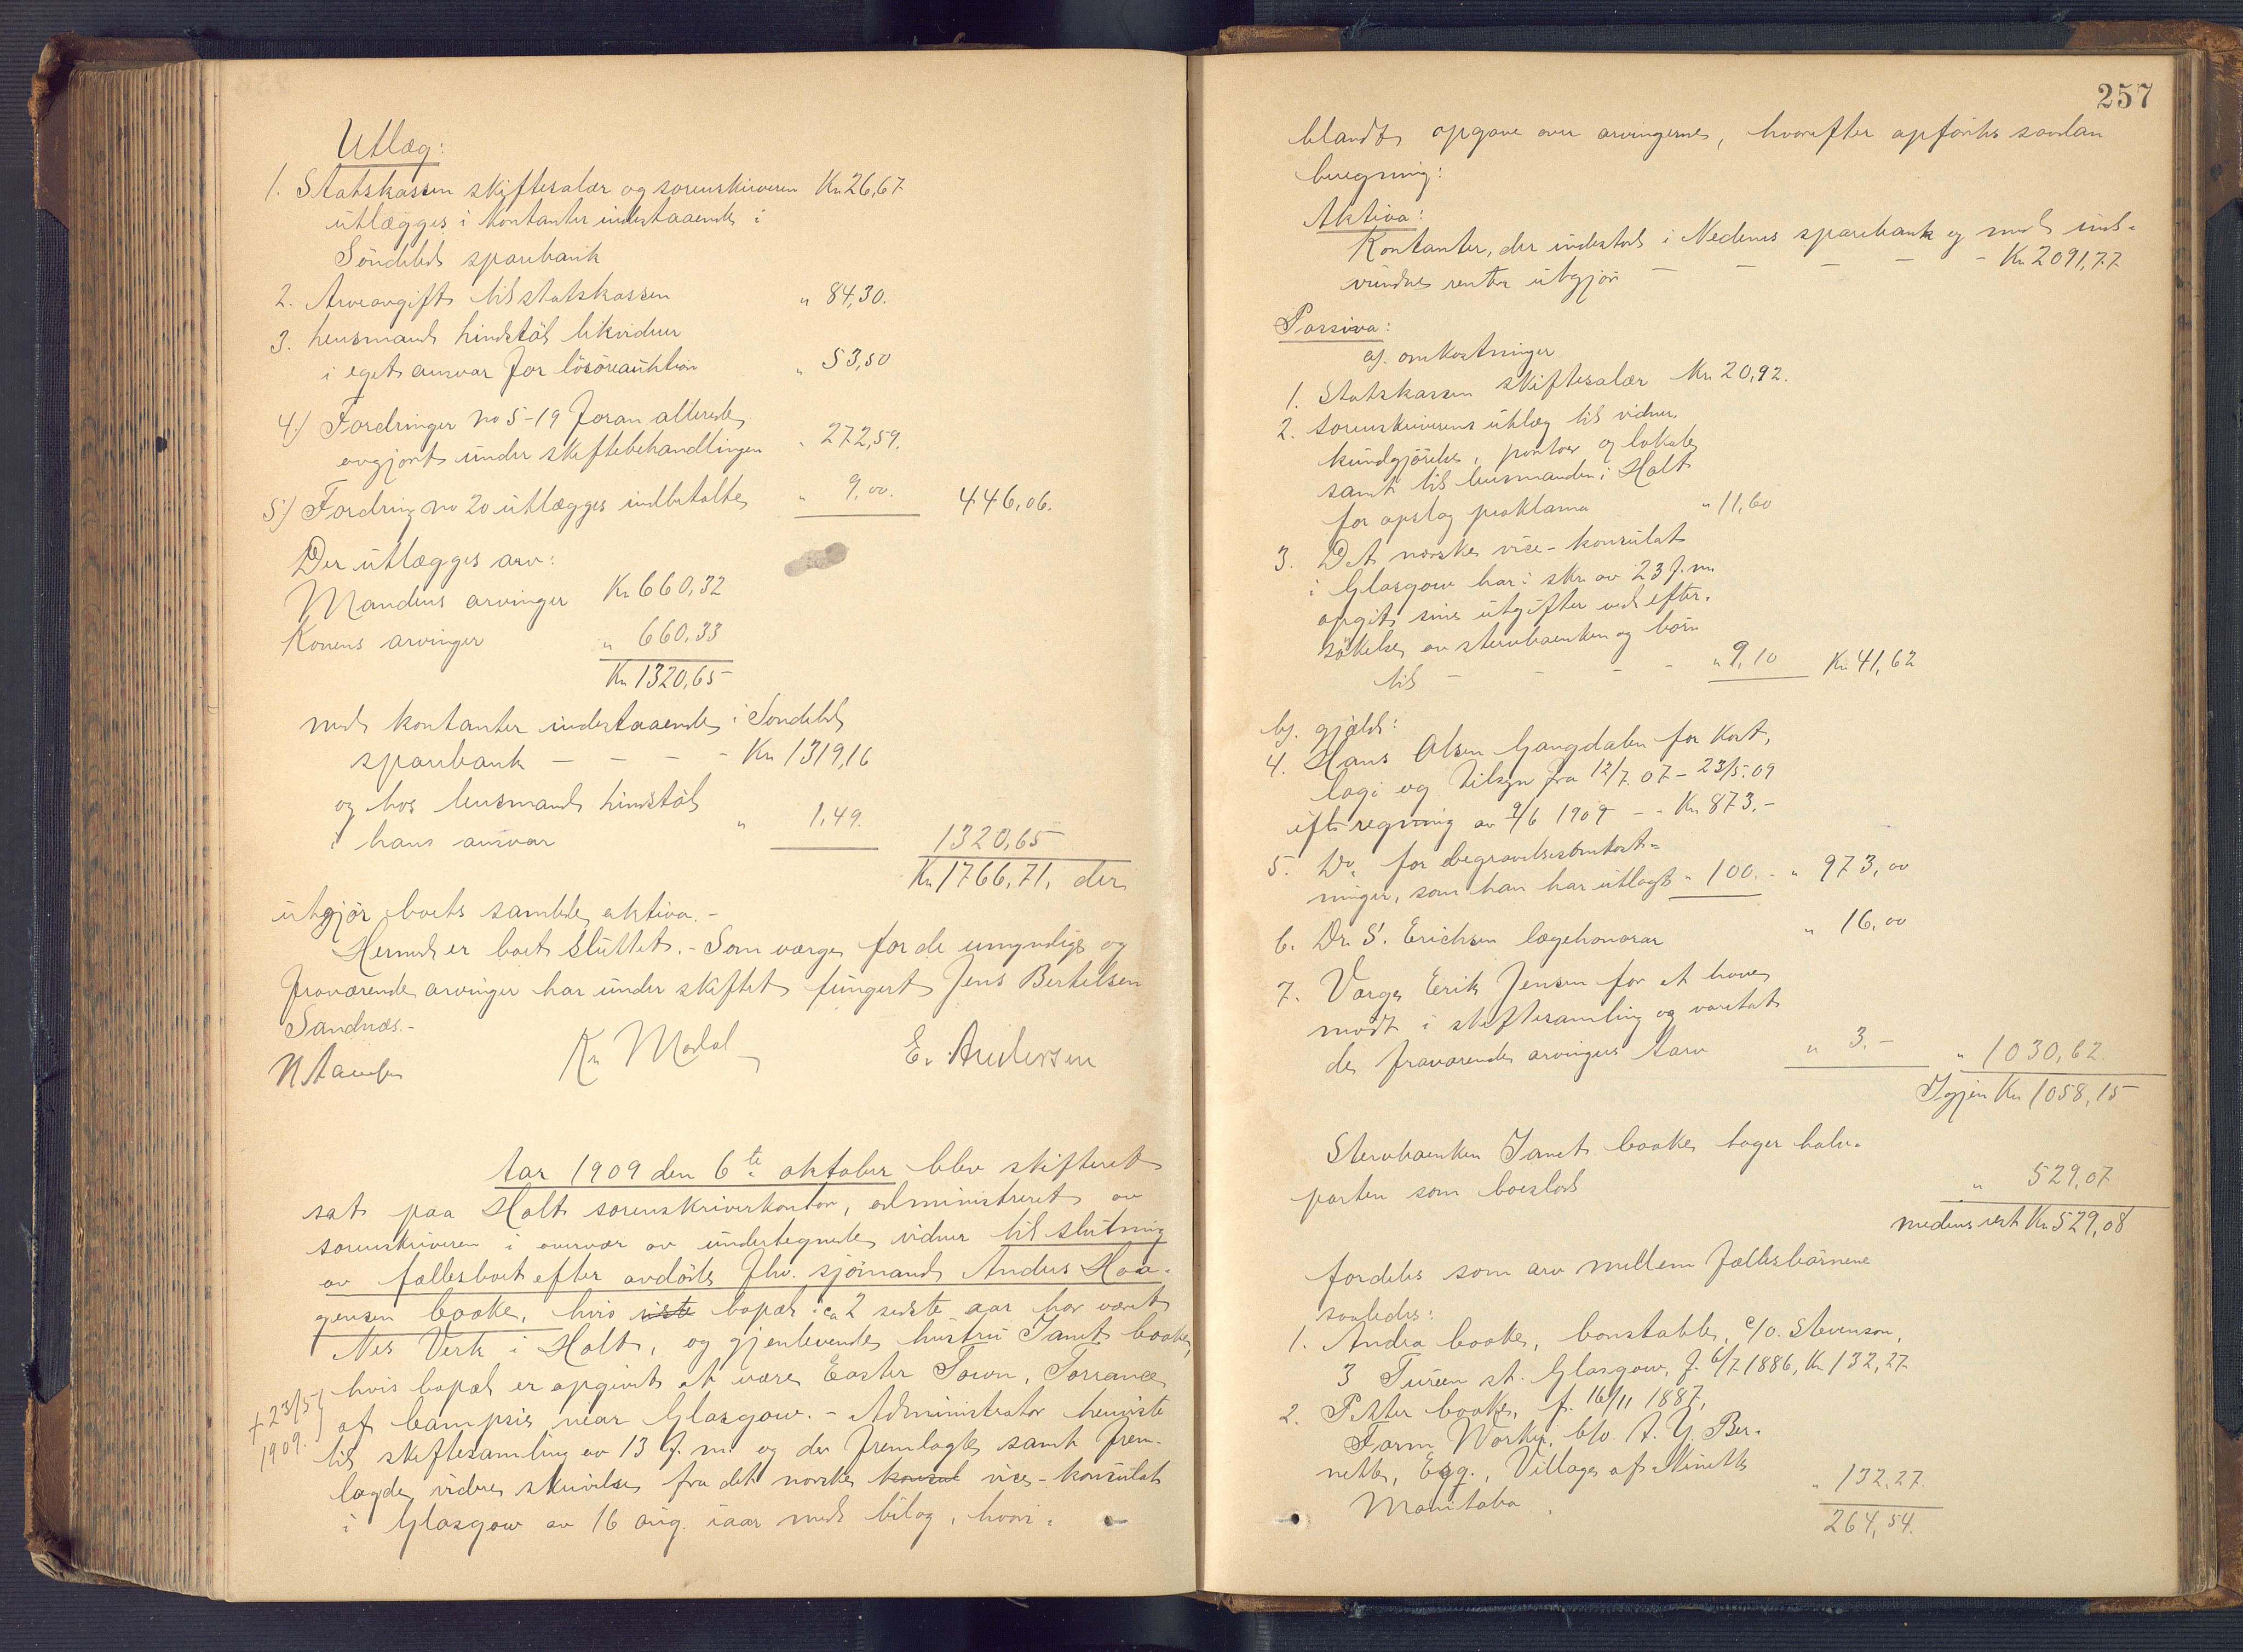 Utlæg:
1. Statskassen skiftesalær og sorenskriveren Kr. 26,67
utlægges i kontanter indestaaende i
Søndeled sparebank
2. Arveavgift til statskassen " 84,30.
3. Lensmand Lindstøl likviderer
i eget ansvar for løsøreauktion " 53,50
4.) Fordringer no 5-19 foran allerede
avgjort under skiftebehandlingen " 272,59.
5.) Fordring no 20 utlægges indbetalte " 9,00. 446,06.
Der utlægges arv:
Mandens arvinger Kr. 660,32
Konens arvinger " 660,33
Kr. 1320,65
med kontanter indestaaende i Søndeled
sparebank - - - - Kr. 1319,16
og hos lensmand Lindstøl
i hans ansvar " 1,49. 1320,65
Kr. 1766,71, der
utgjør boets samlede aktiva.-
Hermed er boet sluttet.- Som værge for de umyndige og
fraværende arvinger har under skiftet fungert Jens Bertelsen
Sandnæs.-
Kr. Modal E. Andersen
Aar 1909 den 6te oktober blev skifteret
sat paa Holt sorenskriverkontor, administreret av
sorenskriveren i overvær av undertegnede vidner til slutning
av fællesboet efter avdøde fhv. sjømand Anders Haa-
gensen Cooke, hvis siste bopæl i ca 2 sidste aar har været
Nes Verk i Holt, og gjenlevende hustru Janet Cooke,
hvis bopæl er opgivet at være Easter Town, Torrance
† 23/5 1909.
of Campsie near Glasgow.- Administrator henviste
til skiftesamling av 13 f. m. og de fremlagte samt frem-
lagde videre skrivelse fra det norske konsul vice-konsulat
i Glasgow av 16 aug. iaar med bilag, hvori-
257
blandt opgave over arvingerne, hvorefter opførtes saadan
beregning:
Aktiva:
Kontanter, der indestod i Nedenes sparebank og med ind-
vundne renter utgjør - - - - - Kr. 2091,77
Passiva:
a). omkostninger
1. Statskassen skiftesalær Kr. 20,92.
2. sorenskriverens utlæg til vidner,
kundgjørelse, portoer og lokale
samt til lensmanden i Holt
for opslag proklama " 11,60
3. Det norske vice-konsulat
i Glasgow har i skr. av 23 f. m.
opgit sine utgifter ved efter-
søkelse av stervboenken og børn
til - - - " 9,10 Kr. 41,62
b). gjæld:
4. Hans Olsen Gangdalen for kost,
logi og tilsyn fra 12/7. 07 - 23/5. 09
efter regning av 9/6 1909 - - Kr. 873.-
5. Do. for begravelsesomkost-
ninger, som han har utlagt " 100.- " 973,00
6. Dr. S. Erichsen lægehonorar " 16,00
7. Værge Erik Jensen for at have
mødt i skiftesamling og varetat
de fraværende arvingers tarv " 3.- " 1030,62.
Igjen Kr. 1058,15
Stervboenken Janet Cooke tager halv-
parten som boeslod " 529,07
medens rest Kr. 529,08
fordeles som arv mellem fællesbørnene
saaledes:
1. Andrea Cooke, Constable, c/o. Stevenson,
3 Tureen st. Glasgow, f. 6/7 1886, Kr. 132,27
2. Petter Cooke, f. 16/11 1887,
Farm Worker, c/o. A. Y. Ber-
nette, Esq., Village of Minette
Manitoba. " 132,27.
264,54.